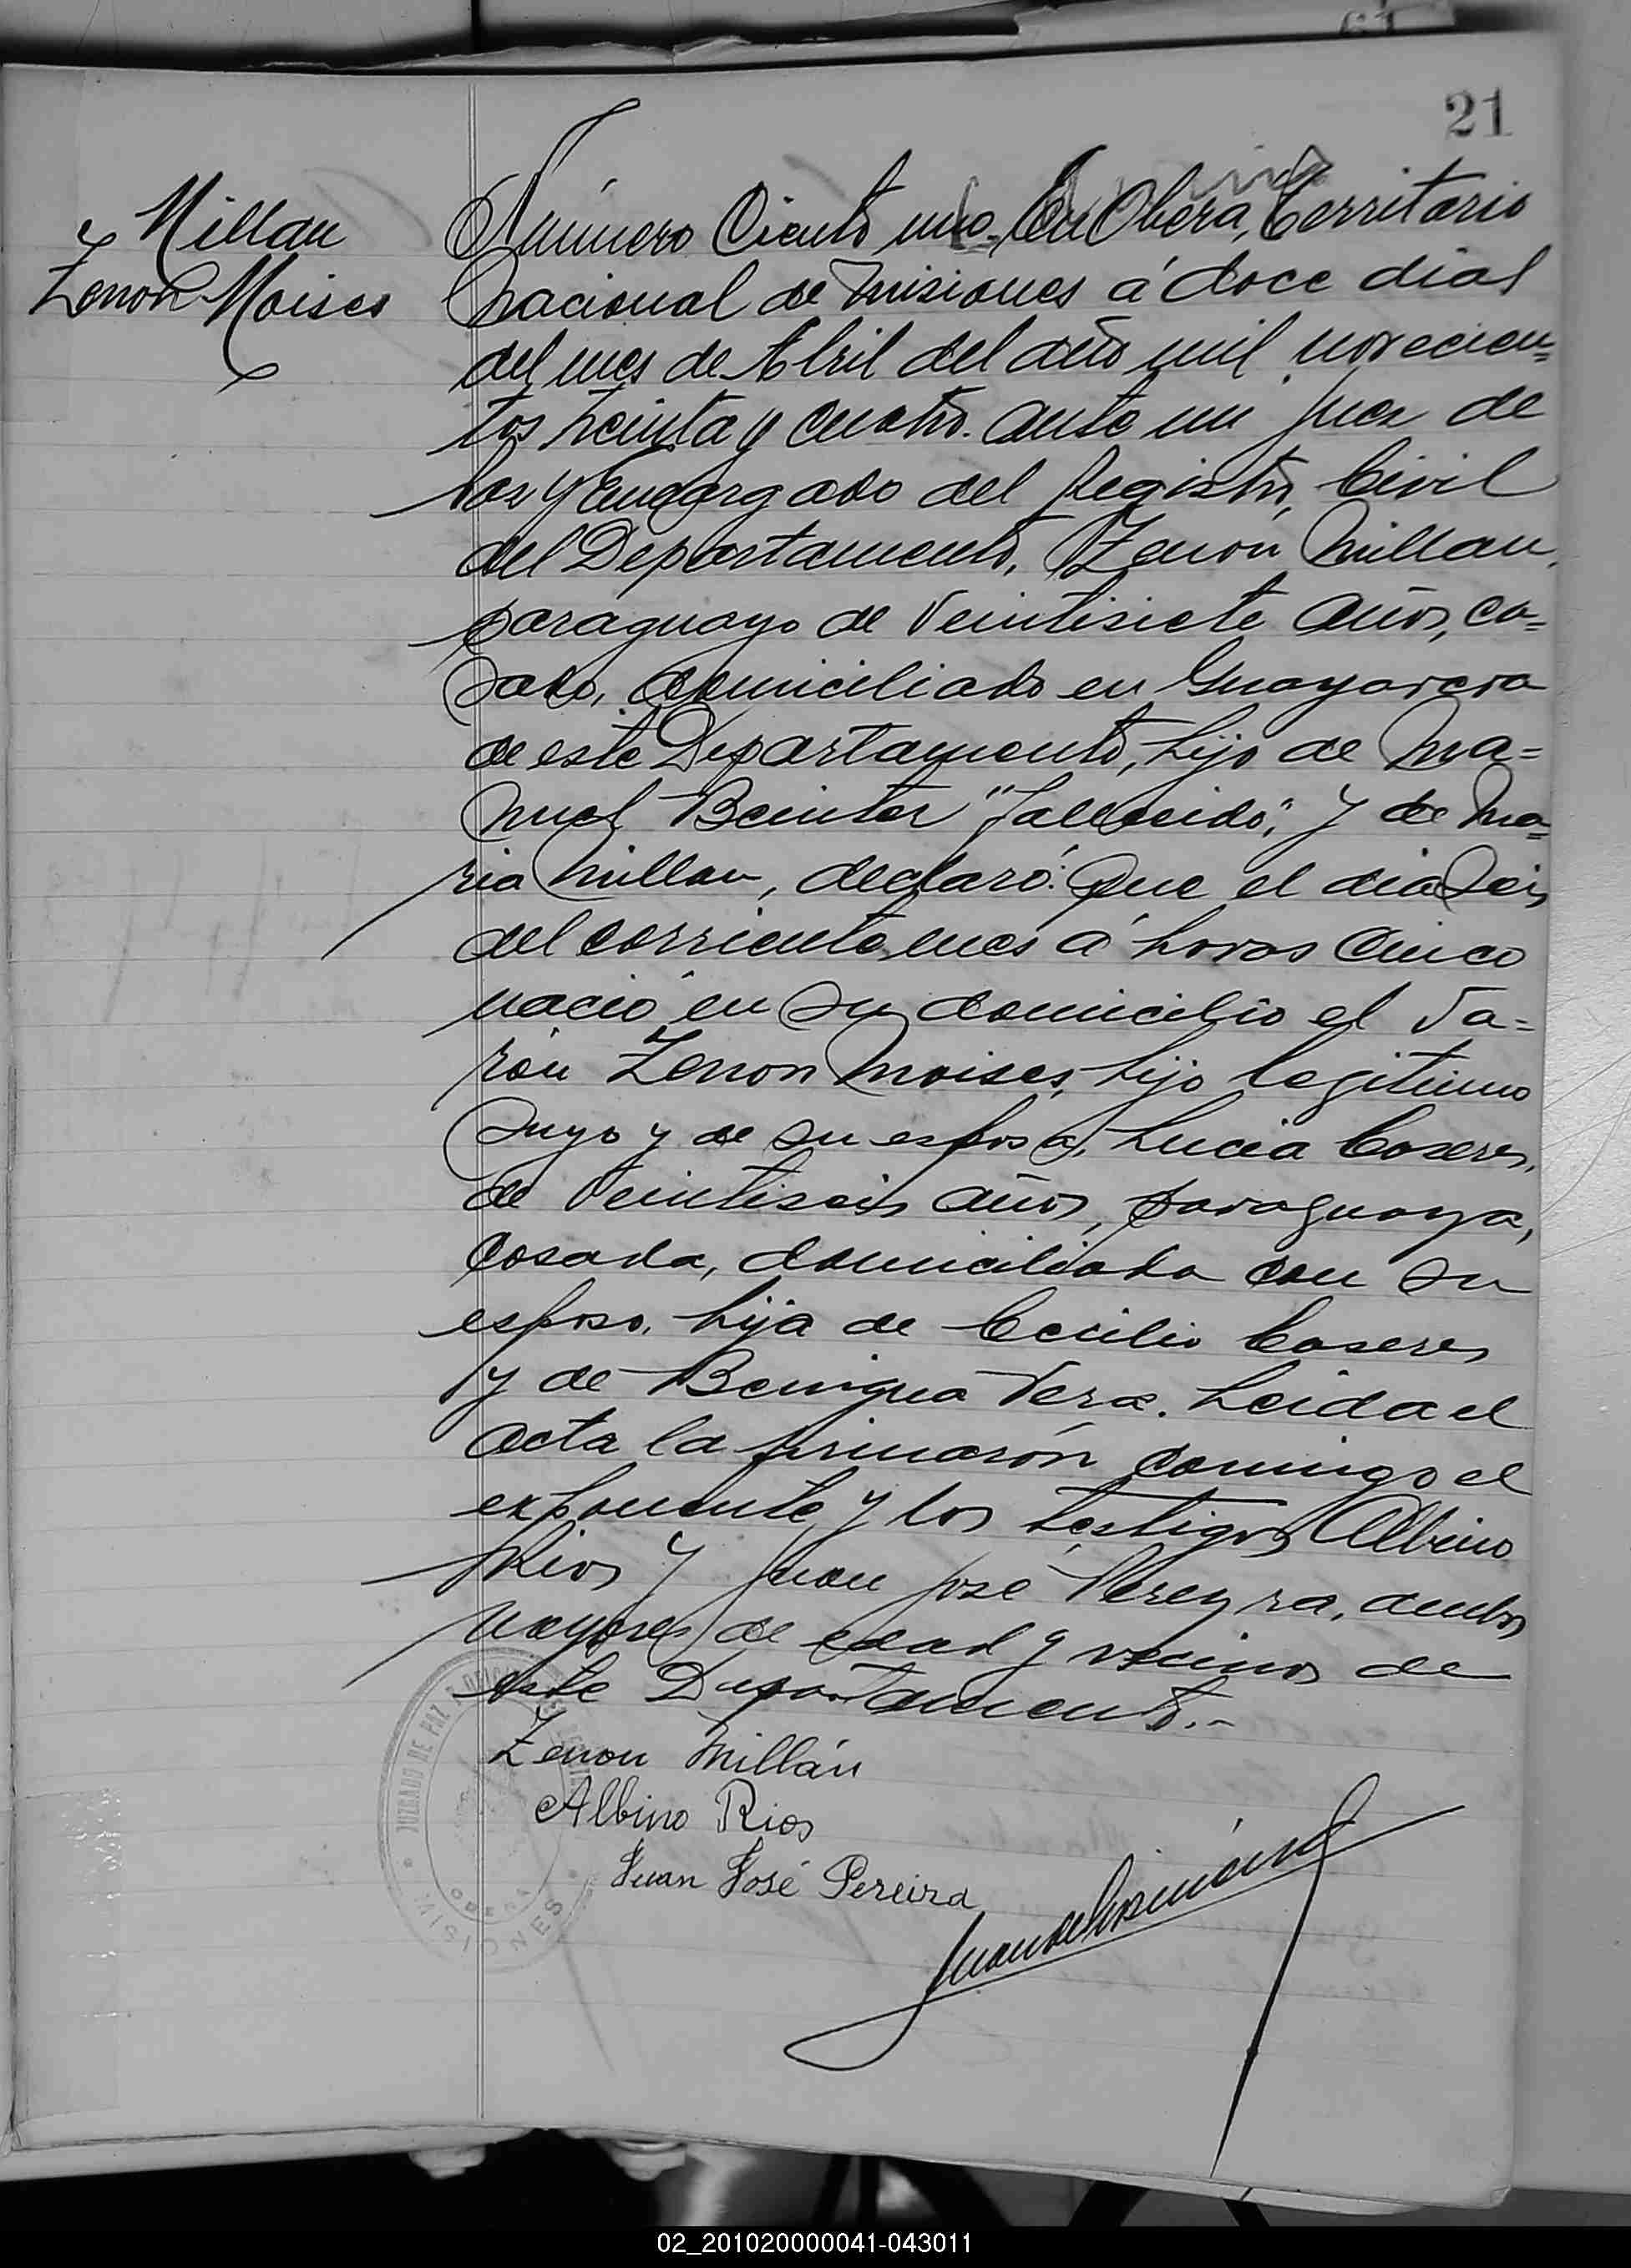 21
Millan
Zenon Moises
Número Ciento uno. En Obera, Territorio
Nacional de Misiones á doce dias
del mes de Abril del año mil novecien=
tos treinta y cuatro. ante mi Juez de
Paz y Encargado del Registro Civil
del Departamento, Zenón Millan,
paraguayo de Veintisiete años, ca=
sado, domiciliado en Guayarera
de este Departamento, hijo de Ma=
nuel Benitez "fallecido", y de Ma=
ria Millan, declaró: Que el dia Seis
del corriente mes á horas Cinco
nació en su domicilio el Va=
rón Zenon Moises, hijo legitimo
Suyo y de su esposa, Lucia Caseres,
de Veintiseis años, paraguaya,
Casada, domiciliada con su
esposo, hija de Cecilio Caseres
y de Benigna Vera. Leida el
acta la firmarón comigo el
exponente y los testigos Albino
Rios y Juan José Pereyra, ambos
mayores de edad y vecinos de
este Departamento.-
Zenon Millán
Albino Rios
Juan José Pereira
JUZGADO DE PAZ
OBERA
MISIONES
02_201020000041-043011